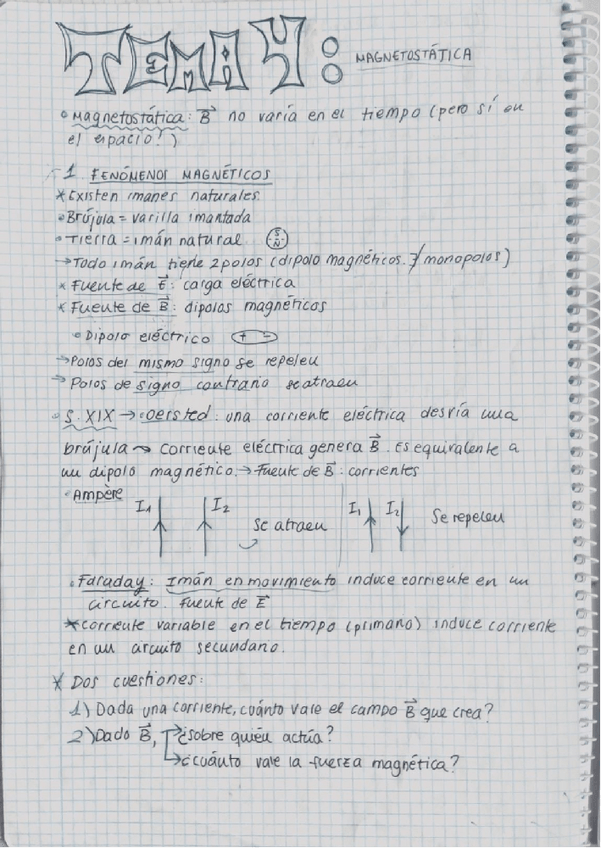 TEMA 4: MAGNETOSTÁTICA
∘ Magnetostática: B⃗ no varía en el tiempo (pero sí en
el espacio!)
1. FENÓMENOS MAGNÉTICOS
* Existen imanes naturales.
∘ Brújula = varilla imantada
∘ Tierra = imán natural. S N
→ Todo imán tiene 2 polos (dipolo magnéticos. ∄ monopolos)
* Fuente de E⃗: carga eléctrica
* Fuente de B⃗: dipolos magnéticos
∘ Dipolo eléctrico + -
→ Polos del mismo signo se repelen
→ Polos de signo contrario se atraen
∘ S. XIX → Oersted: una corriente eléctrica desvía una
brújula ⇝ corriente eléctrica genera B⃗. Es equivalente a
un dipolo magnético. → Fuente de B⃗: corrientes
∘ Ampère I₁ I₂ Se atraen I₁ I₂ Se repelen
∘ Faraday: Imán en movimiento induce corriente en un
circuito. Fuente de E⃗
* Corriente variable en el tiempo (primario) induce corriente
en un circuito secundario.
* Dos cuestiones:
1) Dada una corriente, cuánto vale el campo B⃗ que crea?
2) Dado B⃗, → ¿sobre quién actúa?
→ ¿cuánto vale la fuerza magnética?